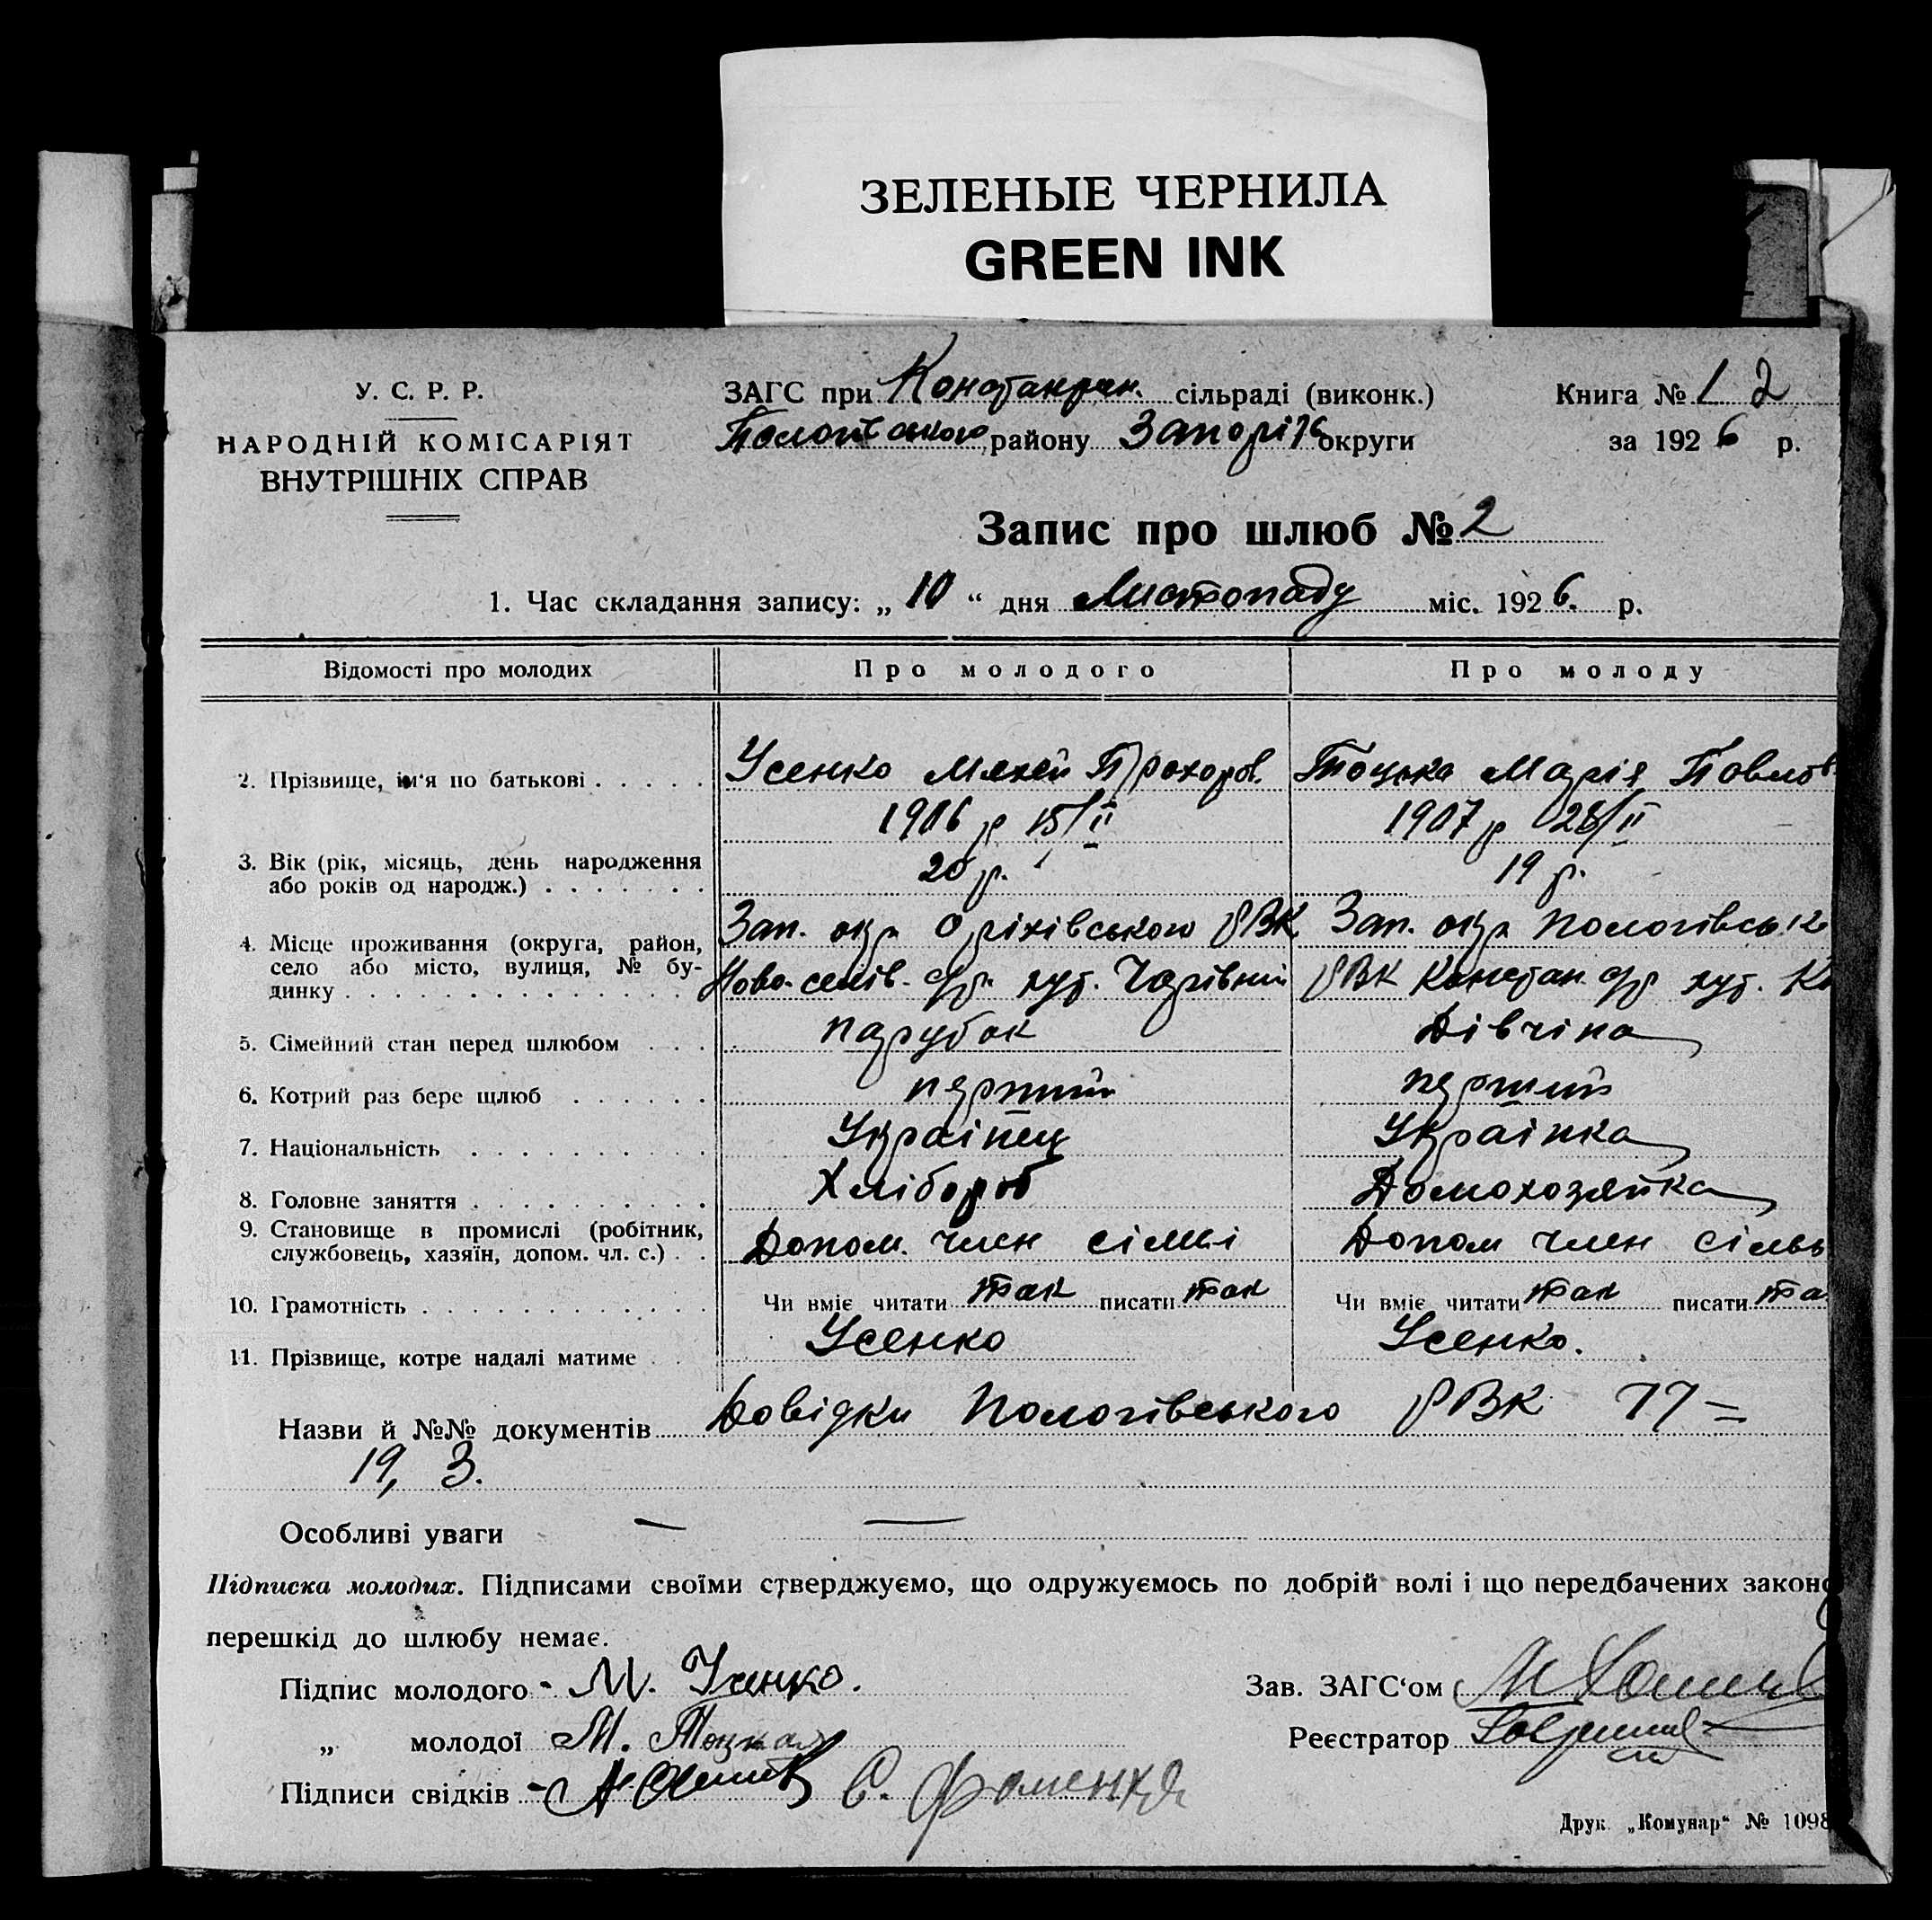 ЗЕЛЕНЫЕ ЧЕРНИЛА
GREEN INK
У. С. Р. Р.
НАРОДНІЙ КОМІСАРІЯТ
ВНУТРІШНІХ СПРАВ
ЗАГС при Константин. сільраді (виконк.)
Пологівського району Запоріж округи
Книга № 1 2
за 1926 р.
Запис про шлюб № 2
1. Час складання запису: „ 10 “ дня Листопаду міс. 1926. р.
Відомості про молодих
Про молодого
Про молоду
2. Прізвище, ім'я по батькові
Усенко Мехей Прохоров.
Тоцька Марія Павлов
3. Вік (рік, місяць, день народження
або років од народж.)
1906 р 15/II
20 р.
1907 р 28/II
19 р.
4. Місце проживання (округа, район,
село або місто, вулиця, № бу-
динку
Зап. окр Оріхівського РВК
Ново-селів. с/р. хут. Чарівний
Зап. окр Пологівськ
РВК Констан. с/р хут.
5. Сімейний стан перед шлюбом
парубок
Дівчіна
6. Котрий раз бере щлюб
перший
перший
7. Національність
Українец
Українка
8. Головне заняття
Хлібороб
Домохозяйка
9. Становище в промислі (робітник,
службовець, хазяїн, допом. чл. с.)
Допом. член сімьі
Допом член сімь
10. Грамотність
Чи вміє читати так писати так
Чи вміє читати так писати та
11. Прізвище, котре надалі матиме
Усенко
Усенко.
Назви й №№ документів Довідки Пологівського РВК 77 =
19, 3.
Особливі уваги — —
Підписка молодих. Підписами своїми стверджуємо, що одружуємось по добрій волі і що передбачених законо
перешкід до шлюбу немає.
Підпис молодого - М. Усенко.
„ молодої М. Тоцка
Підписи свідків - С. Фоменко
Зав. ЗАГС‘ом
Реєстратор
Друк. „Комунар“ № 1098